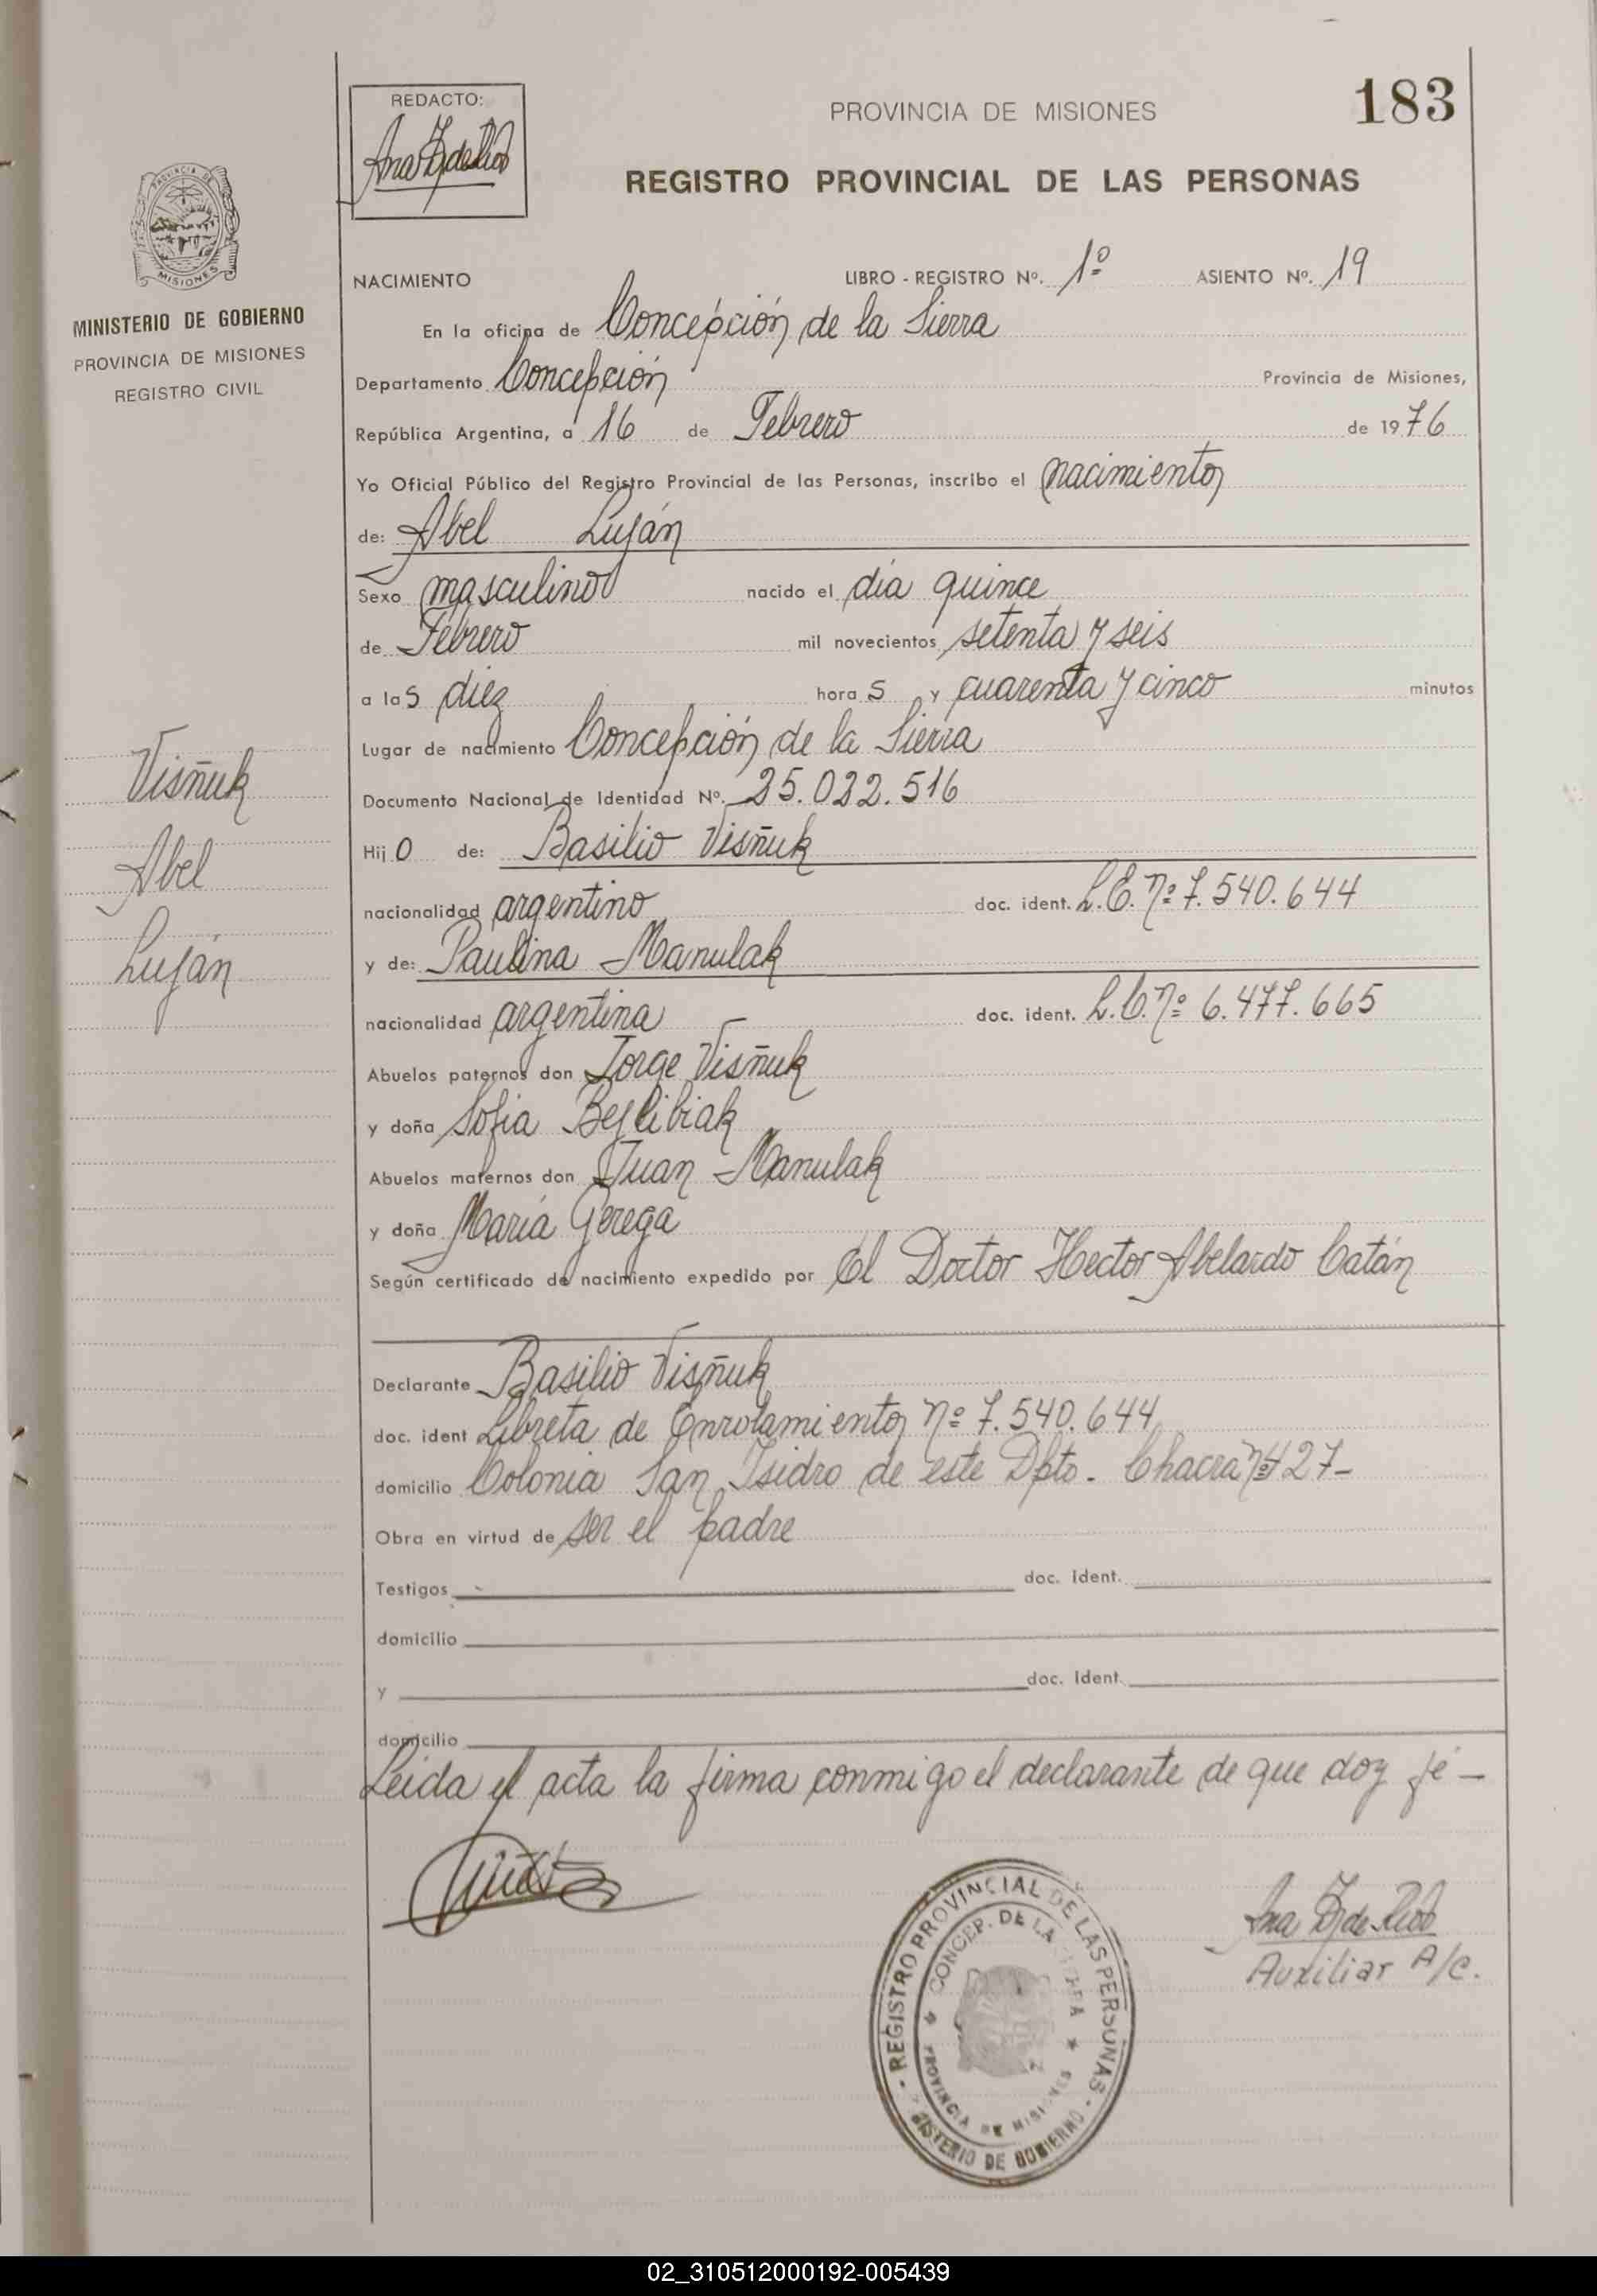 183
REDACTO:
PROVINCIA DE MISIONES
REGISTRO PROVINCIAL DE LAS PERSONAS
PROVINCIA DE
MISIONES
MINISTERIO DE GOBIERNO
PROVINCIA DE MISIONES
REGISTRO CIVIL
NACIMIENTO LIBRO - REGISTRO Nº. 1º ASIENTO Nº. 19
En la oficina de Concepción de la Sierra
Departamento Concepción Provincia de Misiones,
República Argentina, a 16 de Febrero de 1976
Yo Oficial Público del Registro Provincial de las Personas, inscribo el nacimiento
de: Abel Luján
Sexo masculino nacido el día quince
de Febrero mil novecientos setenta y seis
a las diez horas y cuarenta y cinco minutos
Lugar de nacimiento Concepción de la Sierra
Documento Nacional de Identidad Nº. 25.022.516
Hijo de: Basilio Visñuk
nacionalidad argentino doc. ident. L.E. nº 7.540.644
y de: Paulina Manulak
nacionalidad argentina doc. ident. L.C. nº 6.477.665
Abuelos paternos don Jorge Visñuk
y doña Sofia
Abuelos maternos don Juan Manulak
y doña María Gerega
Según certificado de nacimiento expedido por El Doctor Hector Abelardo Catán
Visñuk
Abel
Luján
Declarante Basilio Visñuk
doc. ident Libreta de Enrolamiento nº 7.540.644
domicilio Colonia San Isidro de este Dpto. Chacra nº 427-
Obra en virtud de ser el padre
Testigos doc. ident.
domicilio
y doc. Ident.
domicilio
Leida el acta la firma conmigo el declarante de que doy fé -
REGISTRO PROVINCIAL DE LAS PERSONAS
CONCEP. DE LA
PROVINCIA DE MISIONES
DE GOBIERNO
Ana
Auxiliar A/C.
02_310512000192-005439